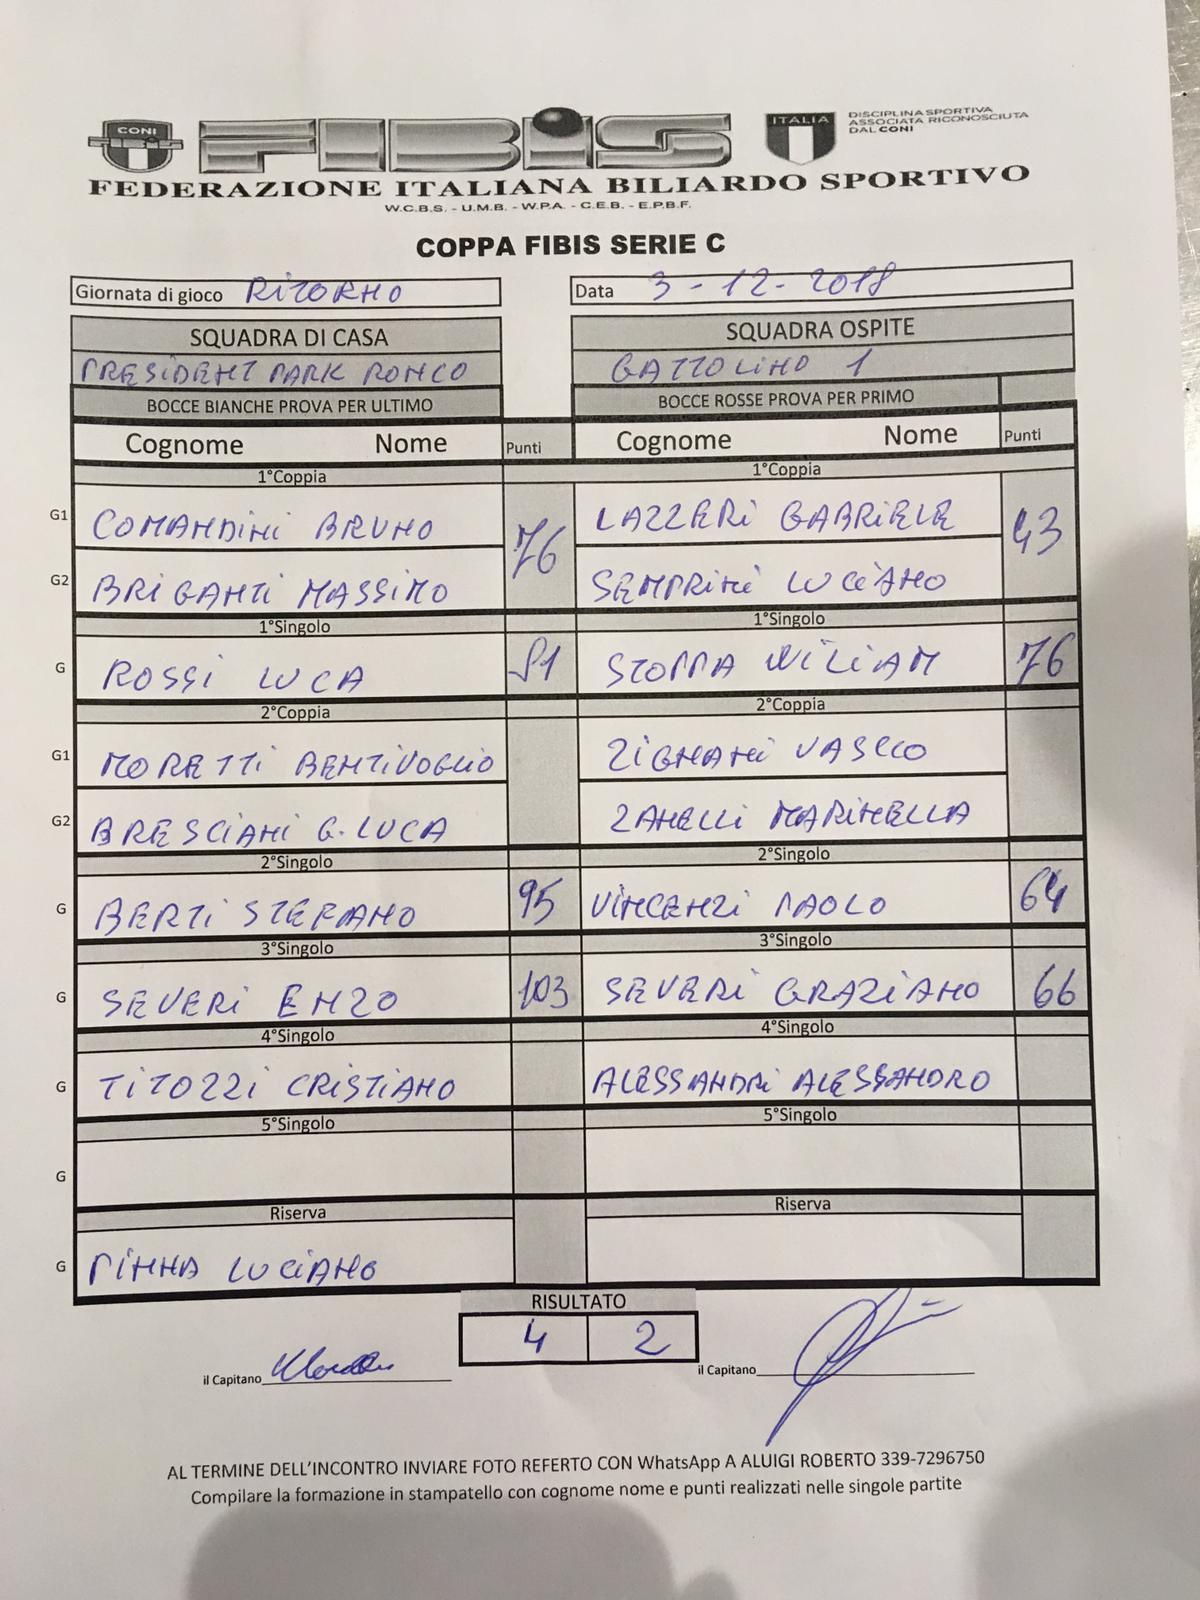 CONI
FIBIS
ITALIA
DISCIPLINA SPORTIVA
ASSOCIATA RICONOSCIUTA
DAL CONI
FEDERAZIONE ITALIANA BILIARDO SPORTIVO
W.C.B.S. - U.M.B. - W.P.A. - C.E.B. - E.P.B.F.
COPPA FIBIS SERIE C
Giornata di gioco RITORNO Data 3-12-2018
SQUADRA DI CASA SQUADRA OSPITE
PRESIDENT PARK RONCO GATTOLINO 1
BOCCE BIANCHE PROVA PER ULTIMO BOCCE ROSSE PROVA PER PRIMO
Cognome Nome Punti Cognome Nome Punti
1°Coppia 1°Coppia
G1 COMANDINI BRUNO 76 LAZZERI GABRIELE 43
G2 BRIGANTI MASSIMO SEMPRINI LUCIANO
1°Singolo 1°Singolo
G ROSSI LUCA 51 STOPPA WILIAM 76
2°Coppia 2°Coppia
G1 MORETTI BENTIVOGLIO ZIGNANI VASCO
G2 BRESCIANI G. LUCA ZANELLI MARINELLA
2°Singolo 2°Singolo
G BERTI STEFANO 95 VINCENZI PAOLO 64
3°Singolo 3°Singolo
G SEVERI ENZO 103 SEVERI GRAZIANO 66
4°Singolo 4°Singolo
G TITOZZI CRISTIANO ALESSANDRI ALESSANDRO
5°Singolo 5°Singolo
G
Riserva Riserva
G PINNA LUCIANO
RISULTATO
4 2
il Capitano il Capitano
AL TERMINE DELL'INCONTRO INVIARE FOTO REFERTO CON WhatsApp A ALUIGI ROBERTO 339-7296750
Compilare la formazione in stampatello con cognome nome e punti realizzati nelle singole partite